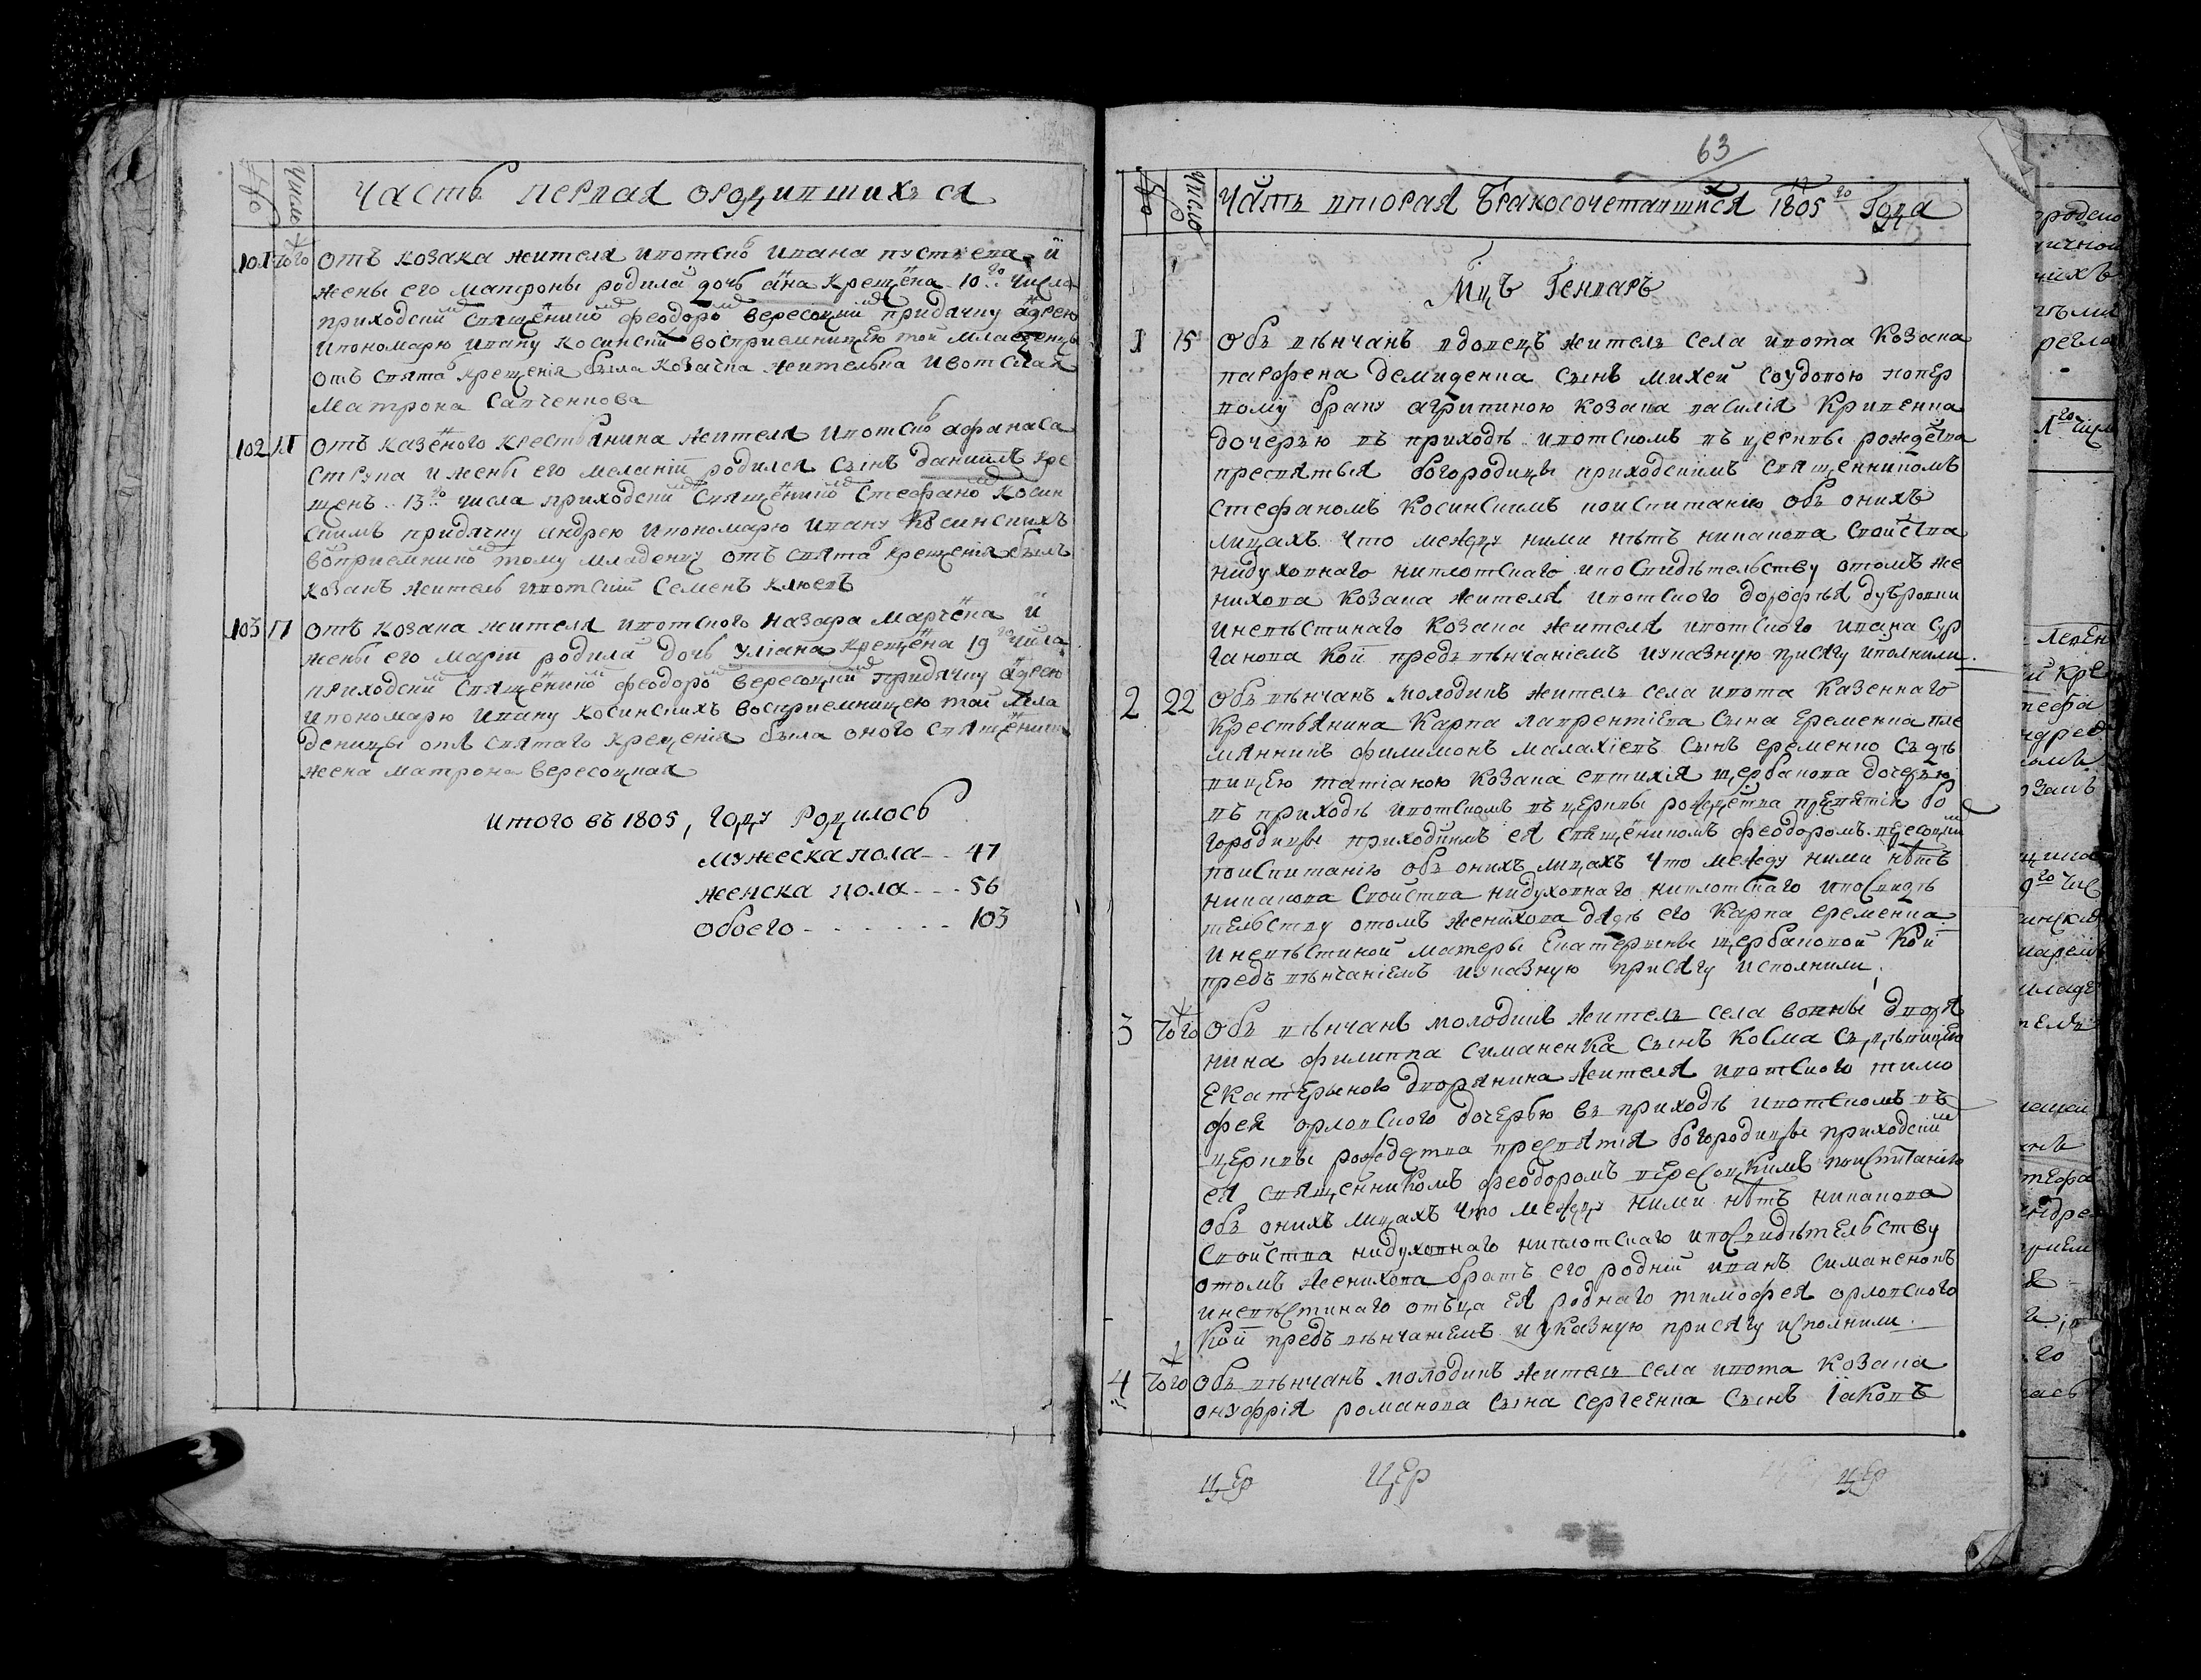 Число
Часть первая ородившихъся
101 Того Отъ козака жителя ивотскѡ ивана пустовета й
жены его матроны родила дочь ана крещена 10го числа
приходским священником феодором вересоцким придячку адрею
ипономарю ивану косинским восприемницею той младенцы
отъ святаго крещенія была козачка жителька ивотская
матрона савченкова
102 Отъ казеного крестьянина жителя ивотскаго афанаса
струка и жены его меланіи родился сынъ даниилъ кре
щенъ 13го числа приходским священиком стефаном косин
скимъ придячку андрею ипономарю ивану косинскихъ
воприемником тому младенцу отъ святаго крещенія былъ
козакъ житель ивотский семенъ клюевъ
103 17 Отъ козака жителя ивотского назара марчена й
жены его маріи родила дочь уліана крещена 19го числа
приходским священиком феодором вересоцким придячку адрею
ипономарю ивану косинскихъ восприемницею той мла
деницы отъ святаго крещенія была оного священика
жена матрона вересоцкая
Итого въ 1805, году родилось
мужеска пола - - 47
женска пола - - - 56
обоего - - - - - - - 103
63
Число
Часть вторая бракосочетавшихся 1805го года
Мцъ Генварь
1 15 Объ вѣнчанъ вдовецъ житель села ивота козака
парфена демиденка сынъ михей соудовою попер
вому браку агрипиною козака василія кривенка
дочерью въ приходѣ ивотскомъ въ церквы рождества
пресвятыя богородицы приходскимъ священникомъ
стефаномъ косинскимъ поиспитанію объ онихъ
лицахъ что между ними нѣтъ никакова свойства
нидуховнаго ниплотскаго ипосвидѣтельству отомъ же
нихова козака жителя ивотского дорофѣя дубровки
иневѣстинаго козака жителя ивотского ивана сур
ганова кои предъ вѣнчаніемъ иуказную присягу исполнили
2 22 Объ вѣнчанъ молодикъ житель села ивота казеннаго
крестьянина карпа лаврентіева сына еременка пле
мянникъ филимонъ малахіевъ сынъ еременко съ дѣ
вицею татіаною козака евтихія щербакова дочерью
въ приходѣ ивотскомъ въ церквы рождества пресвятія бо
городицы приходскимъ ея священикомъ феодоромъ вересоцким
поиспитанію объ онихъ лицахъ что между ними нѣтъ
никакова свойства нидуховнаго ниплотскаго ипосвидѣ
тельству отомъ женихова дядѣ его карпа еременка
иневѣстиной матеры екатерины щербаковой кои
предъ вѣнчаніемъ иуказную присягу исполнили
3 Того Объ вѣнчанъ молодикъ житель села вокны дворя
нина филиппа симаненка сынъ косма съ дѣвицею
екатерыного дворянина жителя ивотского тимо
фея орловского дочерью въ приходѣ ивотскомъ въ
церквы рождества пресвятія богородицы приходским
ея священникомъ феодоромъ вересоцкимъ поиспитанію
объ онихъ лицахъ что между ними нѣтъ никакова
свойства нидуховнаго ниплотскаго ипосвидѣтельству
отомъ женихова братъ его родній иванъ симаненокъ
иневѣстинаго отъца ея роднаго тимофея орловского
кои предъ вѣнчаніемъ иуказную присягу исполнили
4 Того Объ вѣнчанъ молодикъ житель села ивота козака
онуфрія романова сына сергеенка сынъ іаковъ
цер цер цер